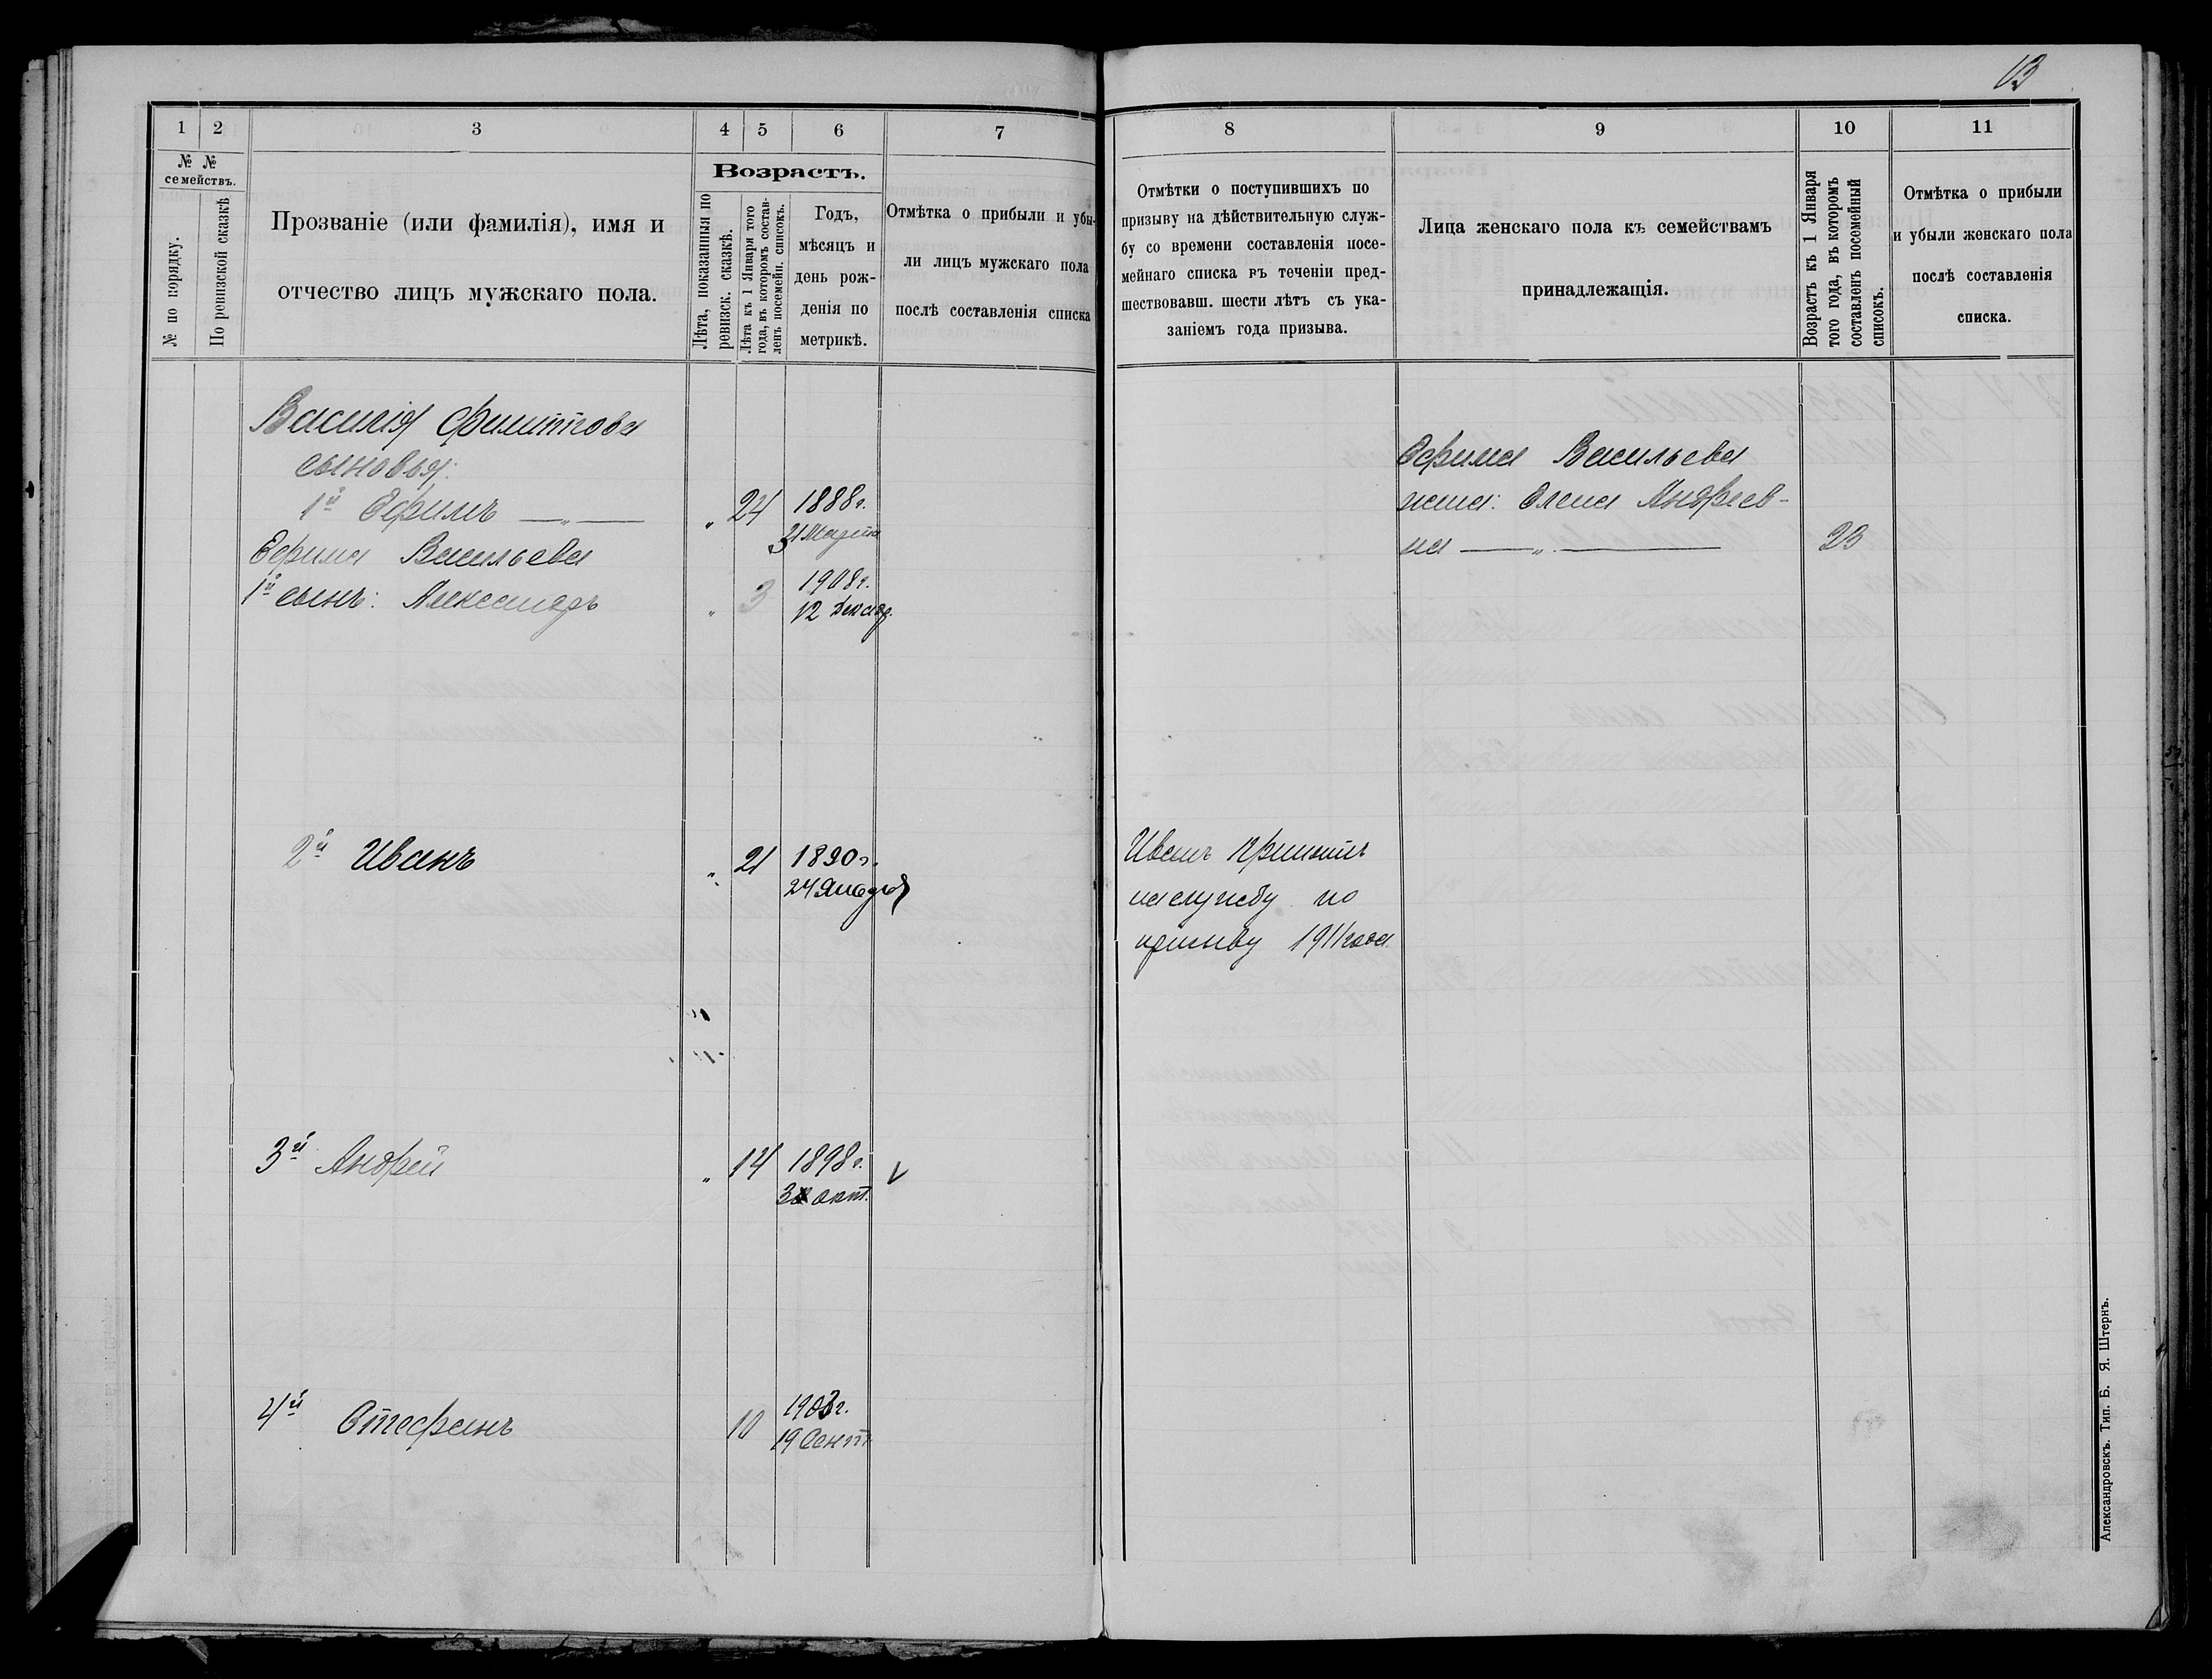 13
1 2 3 4 5 6 7
№ №
семействъ.
№ по порядку.
По ревизской сказкѣ
Прозваніе (или фамилія), имя и
отчество лицъ мужскаго пола.
Возрастъ.
Лѣта, показанныя по
ревизск. сказкѣ.
Лѣта къ 1 Января того
года, въ которомъ состав-
ленъ посемейн. списокъ.
Годъ,
мѣсяцъ и
день рож-
денія по
метрикѣ.
Отмѣтка о прибыли и убы-
ли лицъ мужскаго пола
послѣ составленія списка
Василія Филиппова
сыновья:
1й Ефимъ — „ — „ 24 1888 г.
21 Марта
Ефима Васильева
1й сынъ: Александръ „ 3 1908 г.
12 Декабр.
2й Иванъ „ 21 1890 г.
24 Января
3й Андрей „ 14 1898 г. V
30 Окт.
4й Стефанъ 10 1903 г.
19 Сент.
8 9 10 11
Отмѣтки о поступившихъ по
призыву на дѣйствительную служ-
бу со времени составленія посе-
мейнаго списка въ теченіи пред-
шествовавш. шести лѣтъ съ ука-
заніемъ года призыва.
Лица женскаго пола къ семействамъ
принадлежащія.
Возрастъ къ 1 Января
того года, въ которомъ
составленъ посемейный
списокъ.
Отмѣтка о прибыли
и убыли женскаго пола
послѣ составленія
списка.
Ефима Васильева
жена: Елена Андреев-
на — „ — 23
Иванъ принятъ
на службу по
призыву 1911 года
Александровскъ. Тип. Б. Я. Штернъ.